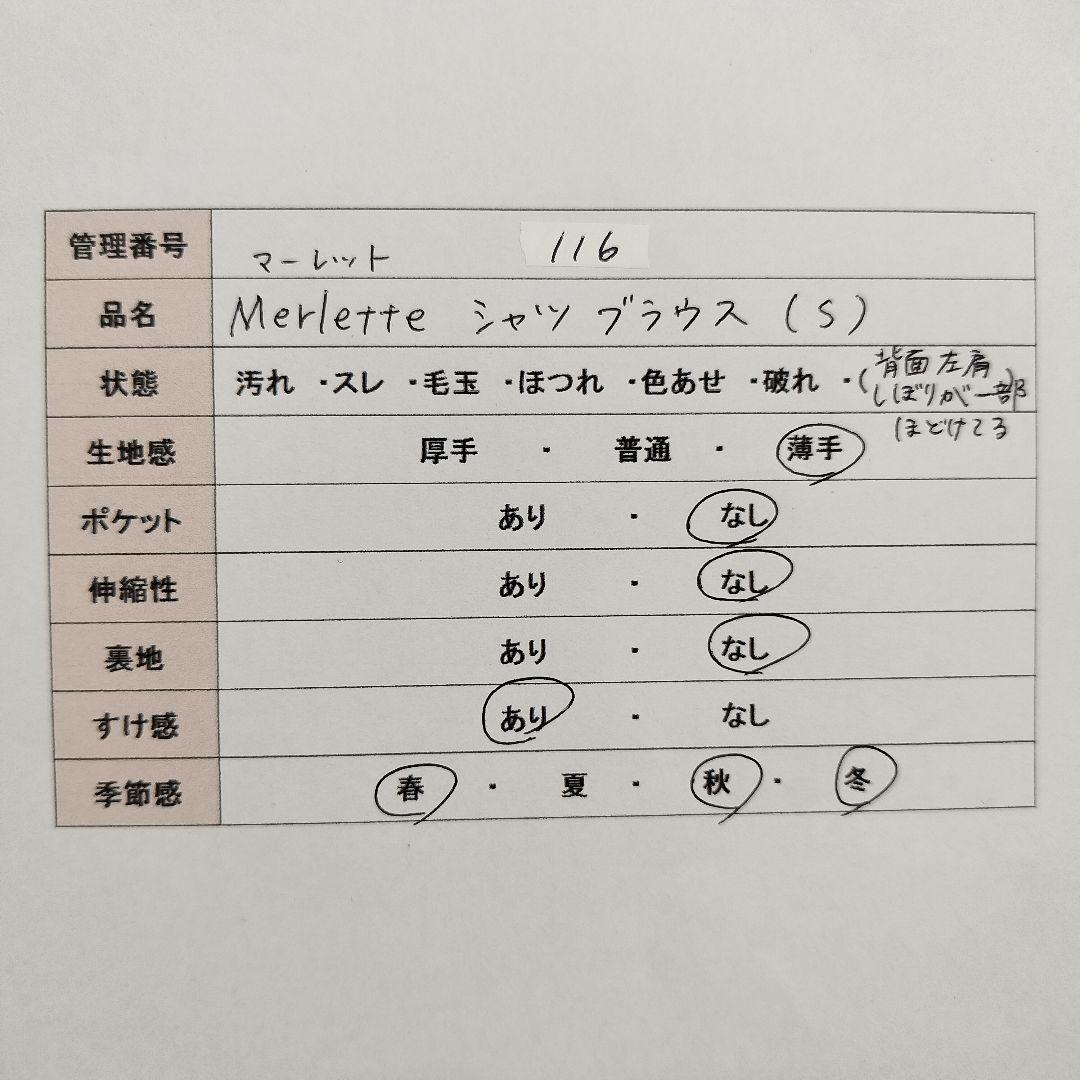 管理番号 116
マーレット
品名 Merlette シャツ ブラウス (S)
状態 汚れ ・スレ ・毛玉 ・ほつれ ・色あせ ・破れ ・(背面 左肩
しぼりが一部)
ほどけてる
生地感 厚手 ・ 普通 ・ 薄手
ポケット あり ・ なし
伸縮性 あり ・ なし
裏地 あり ・ なし
すけ感 あり ・ なし
季節感 春 ・ 夏 ・ 秋 ・ 冬